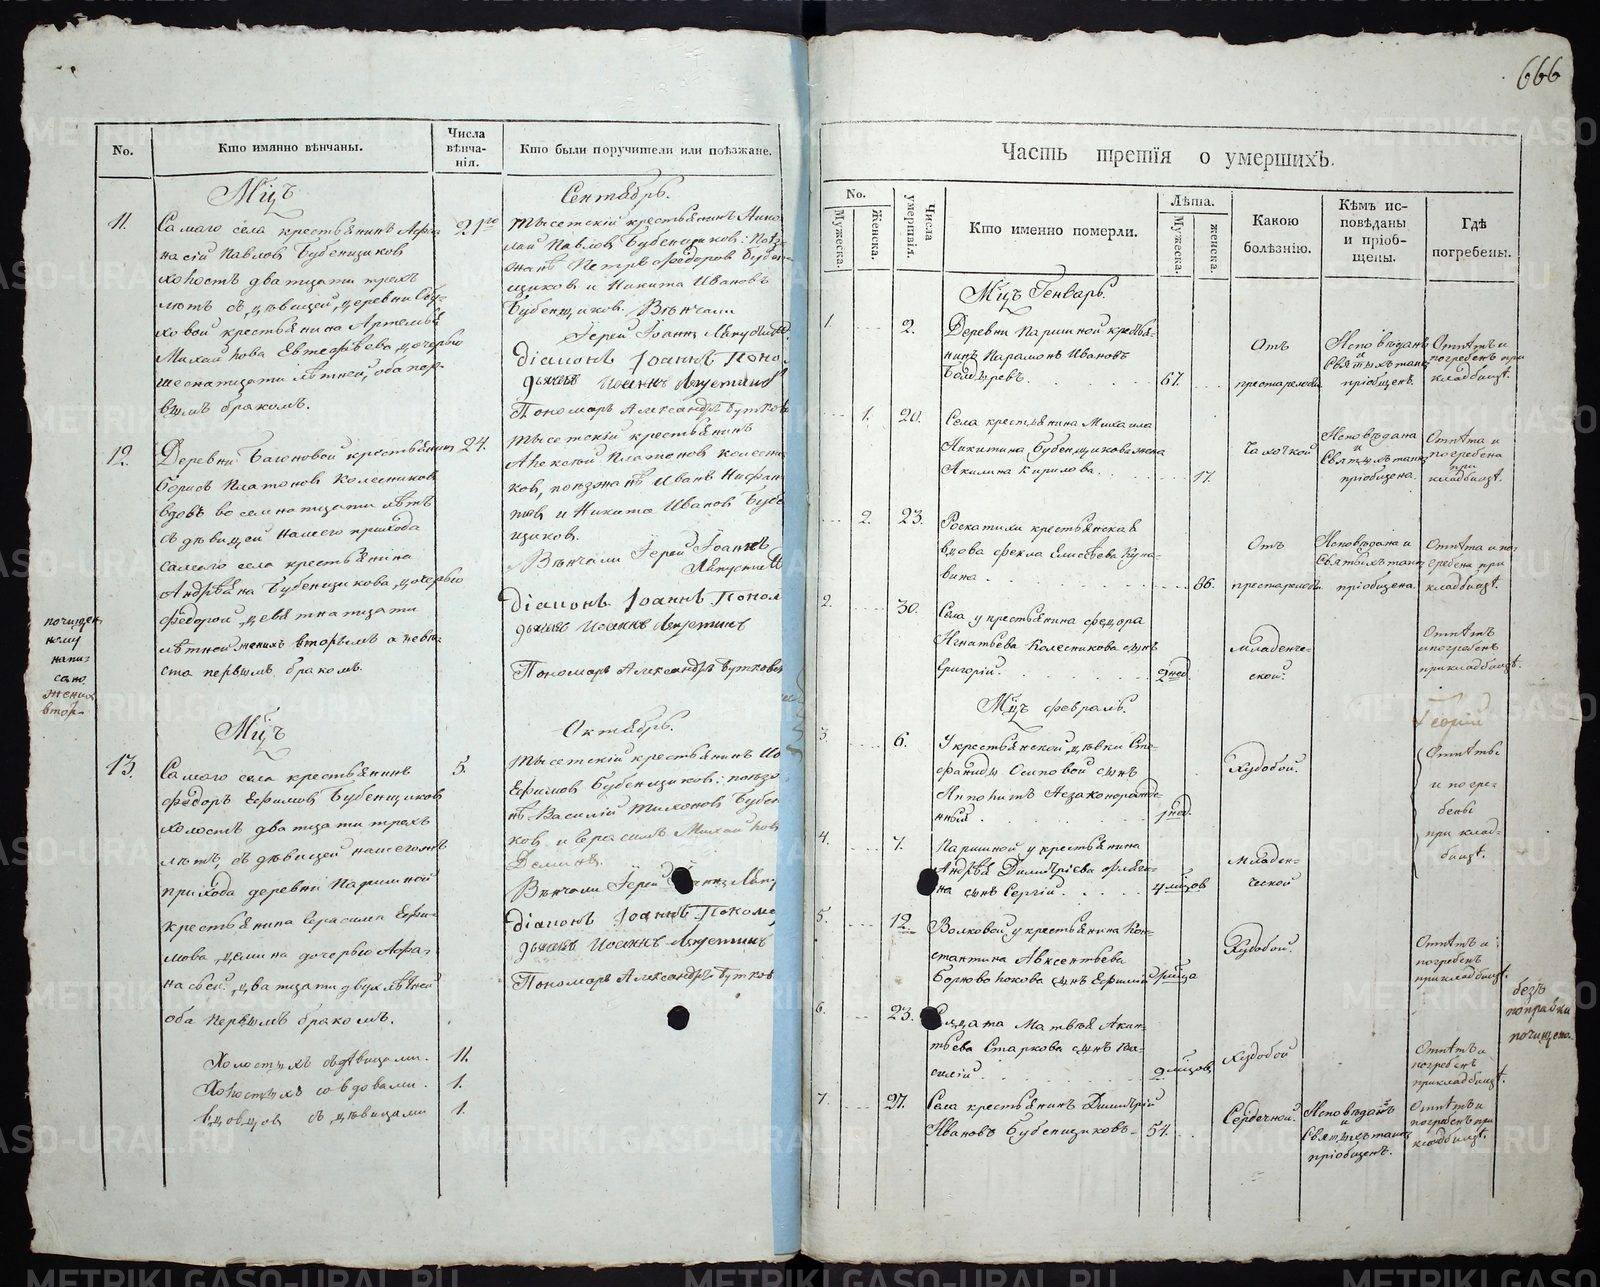 666
No.
Кто имянно вѣнчаны.
Числа
вѣнча-
нія.
Кто были поручители или поѣзжане.
Мцъ
Сентябрь.
11.
Самаго села крестьянинъ Афо-
насій Павловъ Бубенщиковъ
холостъ дватцати трехъ
лѣтъ съ дѣвицей, деревни
ховой крестьянина Артемья
Михайлова Евстефѣева дочерью
шеснатцати лѣтней, оба пер-
вымъ бракомъ.
21го
Тысетскій крестьянинъ Нико-
лай Павловъ Бубенщиковъ: поѣз-
жанѣ Петръ Федоровъ Бубен-
щиковъ и Никита Ивановъ
Бубенщиковъ. Вѣнчали
Іерей Іоаннъ
Діаконъ Іоаннъ Поно
дьячекъ Иоаннъ
Пономарь Александръ Бутков
12.
Деревни крестьянинъ
Борисъ Платоновъ Колесниковъ
вдовъ восемнатцати лѣтъ
съ дѣвицей нашего прихода
самаго села крестьянина
Андрѣяна Бубенщикова, дочерью
Федорой, девятнатцати
лѣтней женихъ вторымъ а невѣ-
ста первымъ бракомъ.
24.
Тысетскій крестьянинъ
Алексѣй Платоновъ Колесни-
ковъ, поѣзжанѣ Иванъ
и Никита Ивановъ Бубен-
щиковъ.
Вѣнчали Іерей Іоаннъ
Діаконъ Іоаннъ Поном
дьячекъ Иоаннъ
Пономарь Александръ Бутковъ
почищен
ному
напи-
сано
женихъ
втор-
Мцъ
Октябрь.
13.
Самаго села крестьянинъ
Федоръ Ефимовъ Бубенщиковъ
холостъ дватцати трехъ
лѣтъ, съ дѣвицей нашегожъ
прихода деревни Паршиной
крестьянина Герасима Ефи-
мова Демина дочерью Афа-
насьей, дватцати двухъ лѣтней
оба первымъ бракомъ.
5.
Тысетскій крестьянинъ
Ефимовъ Бубенщиковъ: поѣзжа-
нѣ Василій Тихоновъ Бубен
ковъ, и Герасимъ Михайлов
Деминъ.
Вѣнчали Іерей
Діаконъ Іоаннъ Поном
дьячекъ Иоаннъ
Пономарь Александръ Бутков
Холостыхъ съ дѣвицами. 11.
Холостыхъ со вдовами. 1.
Вдовцовъ съ дѣвицами 1.
Часть третія о умершихъ.
No.
Мужеска.
Женска.
Числа
умершія.
Кто именно померли.
Лѣта.
Мужеска.
женска.
Какою
болѣзнію.
Кѣмъ ис-
повѣданы
и пріоб-
щены.
Гдѣ
погребены.
Мцъ Генварь.
1. 2.
Деревни Паршиной крестья-
нинъ Парамонъ Ивановъ
Болдыревъ. 67.
Отъ
престарелости
Исповѣданъ
и
Святыхъ таинъ
пріобщенъ.
Отпѣтъ и
погребенъ при
кладбищѣ.
1. 20.
Села крестьянина Михаила
Никитина Бубенщикова жена
Акилина Кирилова. 17.
Чахоткой
Исповѣдана
и
Святыхъ таинъ
пріобщена.
Отпѣта и
погребена
при
кладбищѣ.
2. 23.
крестьянская
вдова Фекла Елисѣева Куна-
вина. 86.
Отъ
престарелости
Исповѣдана и
Святыхъ таинъ
пріобщена.
Отпѣта и по-
гребена при
кладбищѣ.
2. 30.
Села у крестьянина Федора
Игнатьева Колесникова сынъ
Григорій. 2 нед
Младенче-
ской.
Отпѣтъ
и погребенъ
при кладбищѣ.
Мцъ Февраль.
3. 6.
У крестьянской дѣвки Сте-
фаниды Осиповой сынъ
Ипполитъ Незаконорожде-
нный. 1 нед.
Худобой.
Отпѣты
и погре-
бены
при клад-
бищѣ.
4. 7.
Паршиной у крестьянина
Андрѣя Димитріева
на сынъ Сергій. 4 мцовъ
Младен-
ческой
5. 12.
Волковой у крестьянина Кон-
стантина Авксентьева
сынъ Ефимій 2 мца
Худобой.
Отпѣтъ и
погребенъ
при кладбищѣ.
6. 23.
Солдата Матвѣя Акин-
тьева Старкова сынъ Ва-
силій. 2 мцовъ
Худобой
Отпѣтъ и
погребенъ
при кладбищѣ.
безъ
поправки
почищено.
7. 27.
Села крестьянинъ Димитрій
Ивановъ Бубенщиковъ 54.
Сердечной.
Исповѣданъ
и
Святыхъ таинъ
пріобщенъ.
Отпѣтъ и
погребенъ при
кладбищѣ.
METRIKI.GASO-URAL.RU